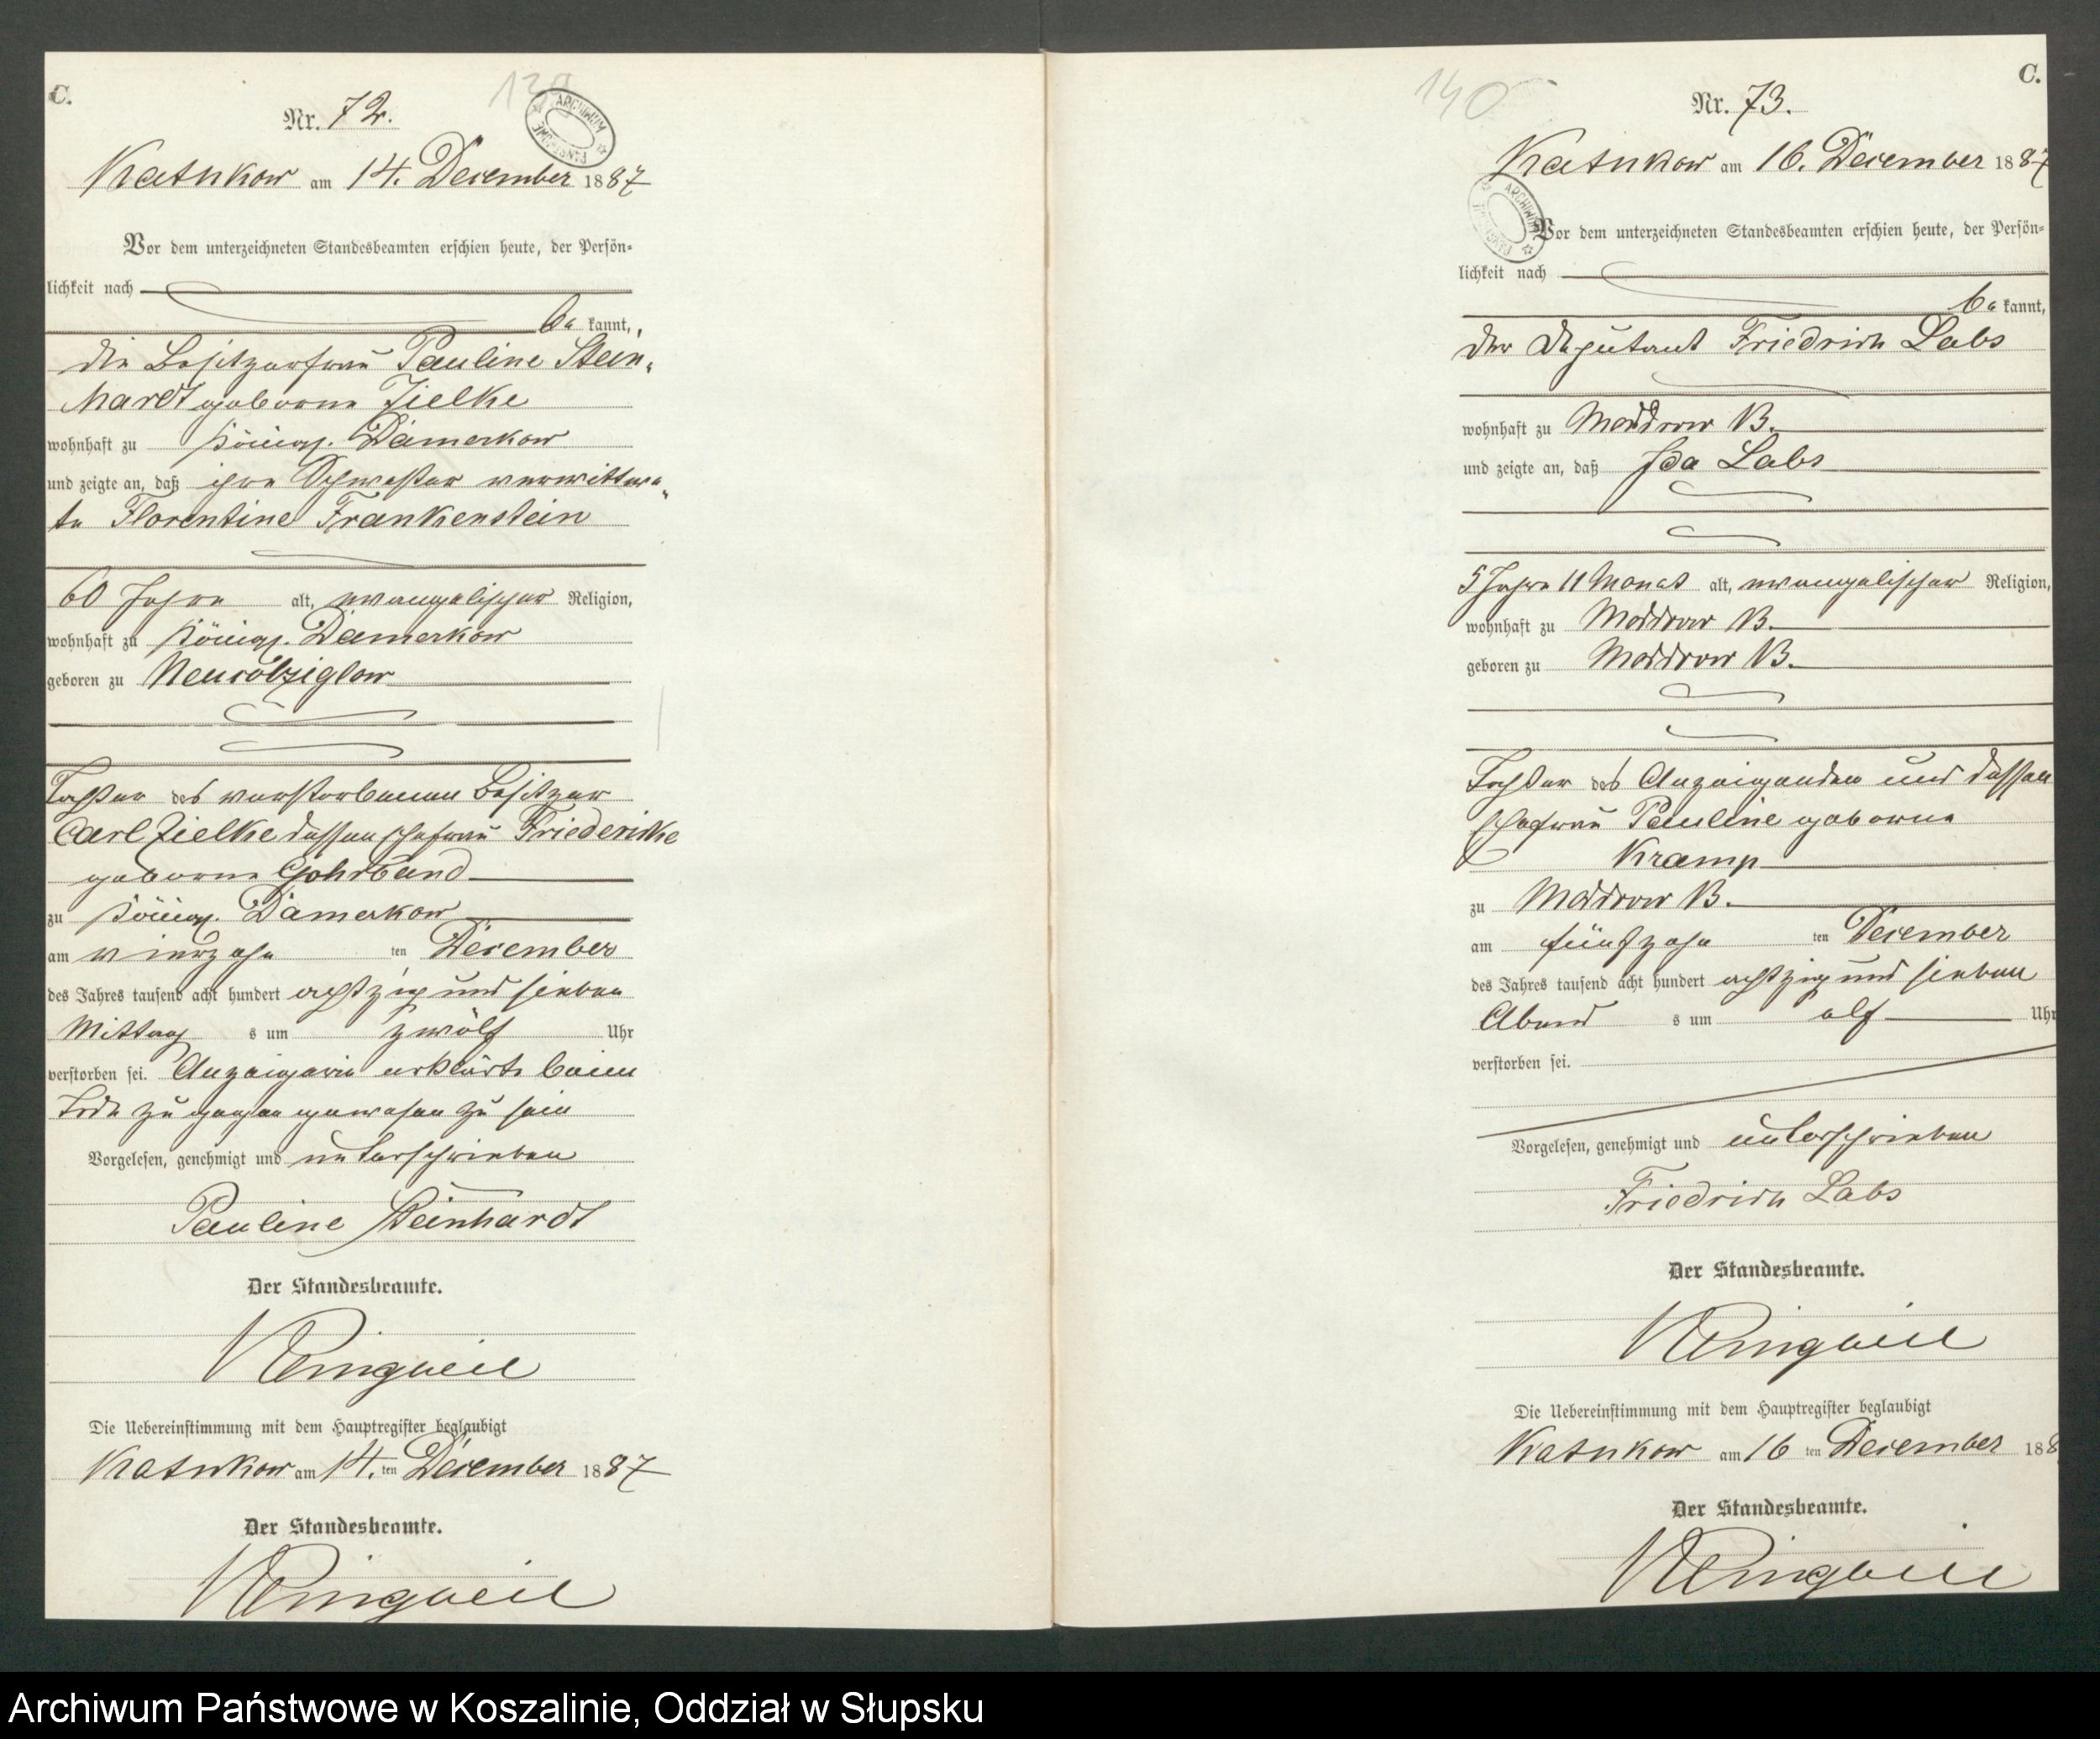 C.
Nr. 72.
Katnkow am 14. December 1887
Vor dem unterzeichneten Standesbeamten erschien heute, der Persön-
lichkeit nach
be kannt,
die Besitzerfrau Pauline Stein-
hardt geborne Zielke
wohnhaft zu Königl. Damerkow
und zeigte an, daß ihre Schwester verwittwe-
te Florentine Frankenstein
60 Jahre alt, evangelischer Religion,
wohnhaft zu Königl. Damerkow
geboren zu Neucolziglow
Tochter des verstorbenen Besitzer
Carl Zielke dessen Ehefrau Friedericke
geborne Gohrband
zu Königl. Damerkow
am vierzehn ten December
des Jahres tausend acht hundert achtzig und sieben
Mittag s um zwölf Uhr
verstorben sei. Anzeigerin erklärte beim
Tode zugegen gewesen zu sein
Vorgelesen, genehmigt und unterschrieben
Pauline Steinhardt
Der Standesbeamte.
Die Uebereinstimmung mit dem Hauptregister beglaubigt
Katnkow am 14. ten December 1887
Der Standesbeamte.
140
C.
Nr. 73.
Katnkow am 16. December 1887
Vor dem unterzeichneten Standesbeamten erschien heute, der Persön-
lichkeit nach
be kannt,
der Deputant Friedrich Labs
wohnhaft zu Moddrow B.
und zeigte an, daß Ida Labs
5 Jahre 11 Monat alt, evangelischer Religion,
wohnhaft zu Moddrow B.
geboren zu Moddrow B.
Tochter des Anzeigenden und dessen
Ehefrau Pauline geborne
Kramp
zu Moddrow B.
am fünfzehn ten December
des Jahres tausend acht hundert achtzig und sieben
Abend s um elf Uhr
verstorben sei.
Vorgelesen, genehmigt und unterschrieben
Friedrich Labs
Der Standesbeamte.
Die Uebereinstimmung mit dem Hauptregister beglaubigt
Katnkow am 16 ten December 188
Der Standesbeamte.
Archiwum Państwowe w Koszalinie, Oddział w Słupsku